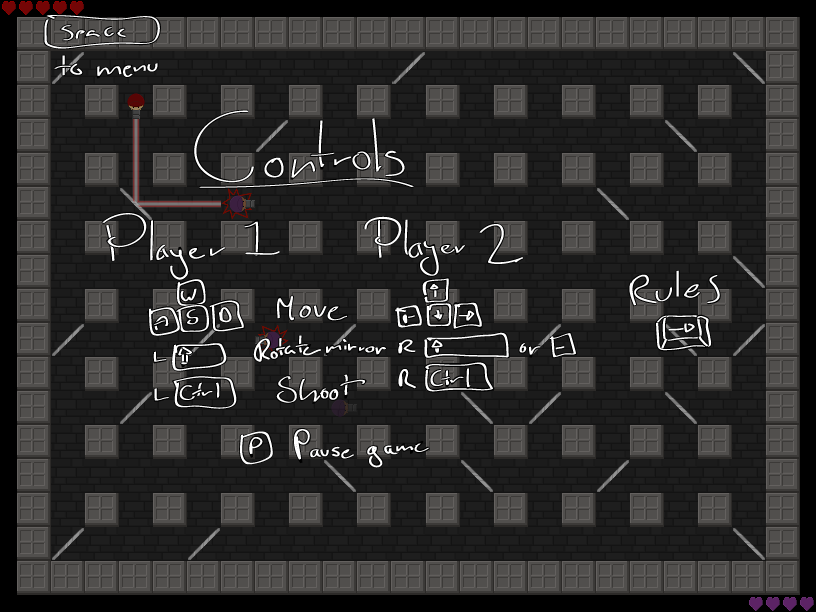 Space
to menu
Controls
Player 1 Player 2
W ↑
A S D Move ← ↓ → Rules
L ⇧ Rotate mirror R ⇧ or - →
L Ctrl Shoot R Ctrl
P Pause game